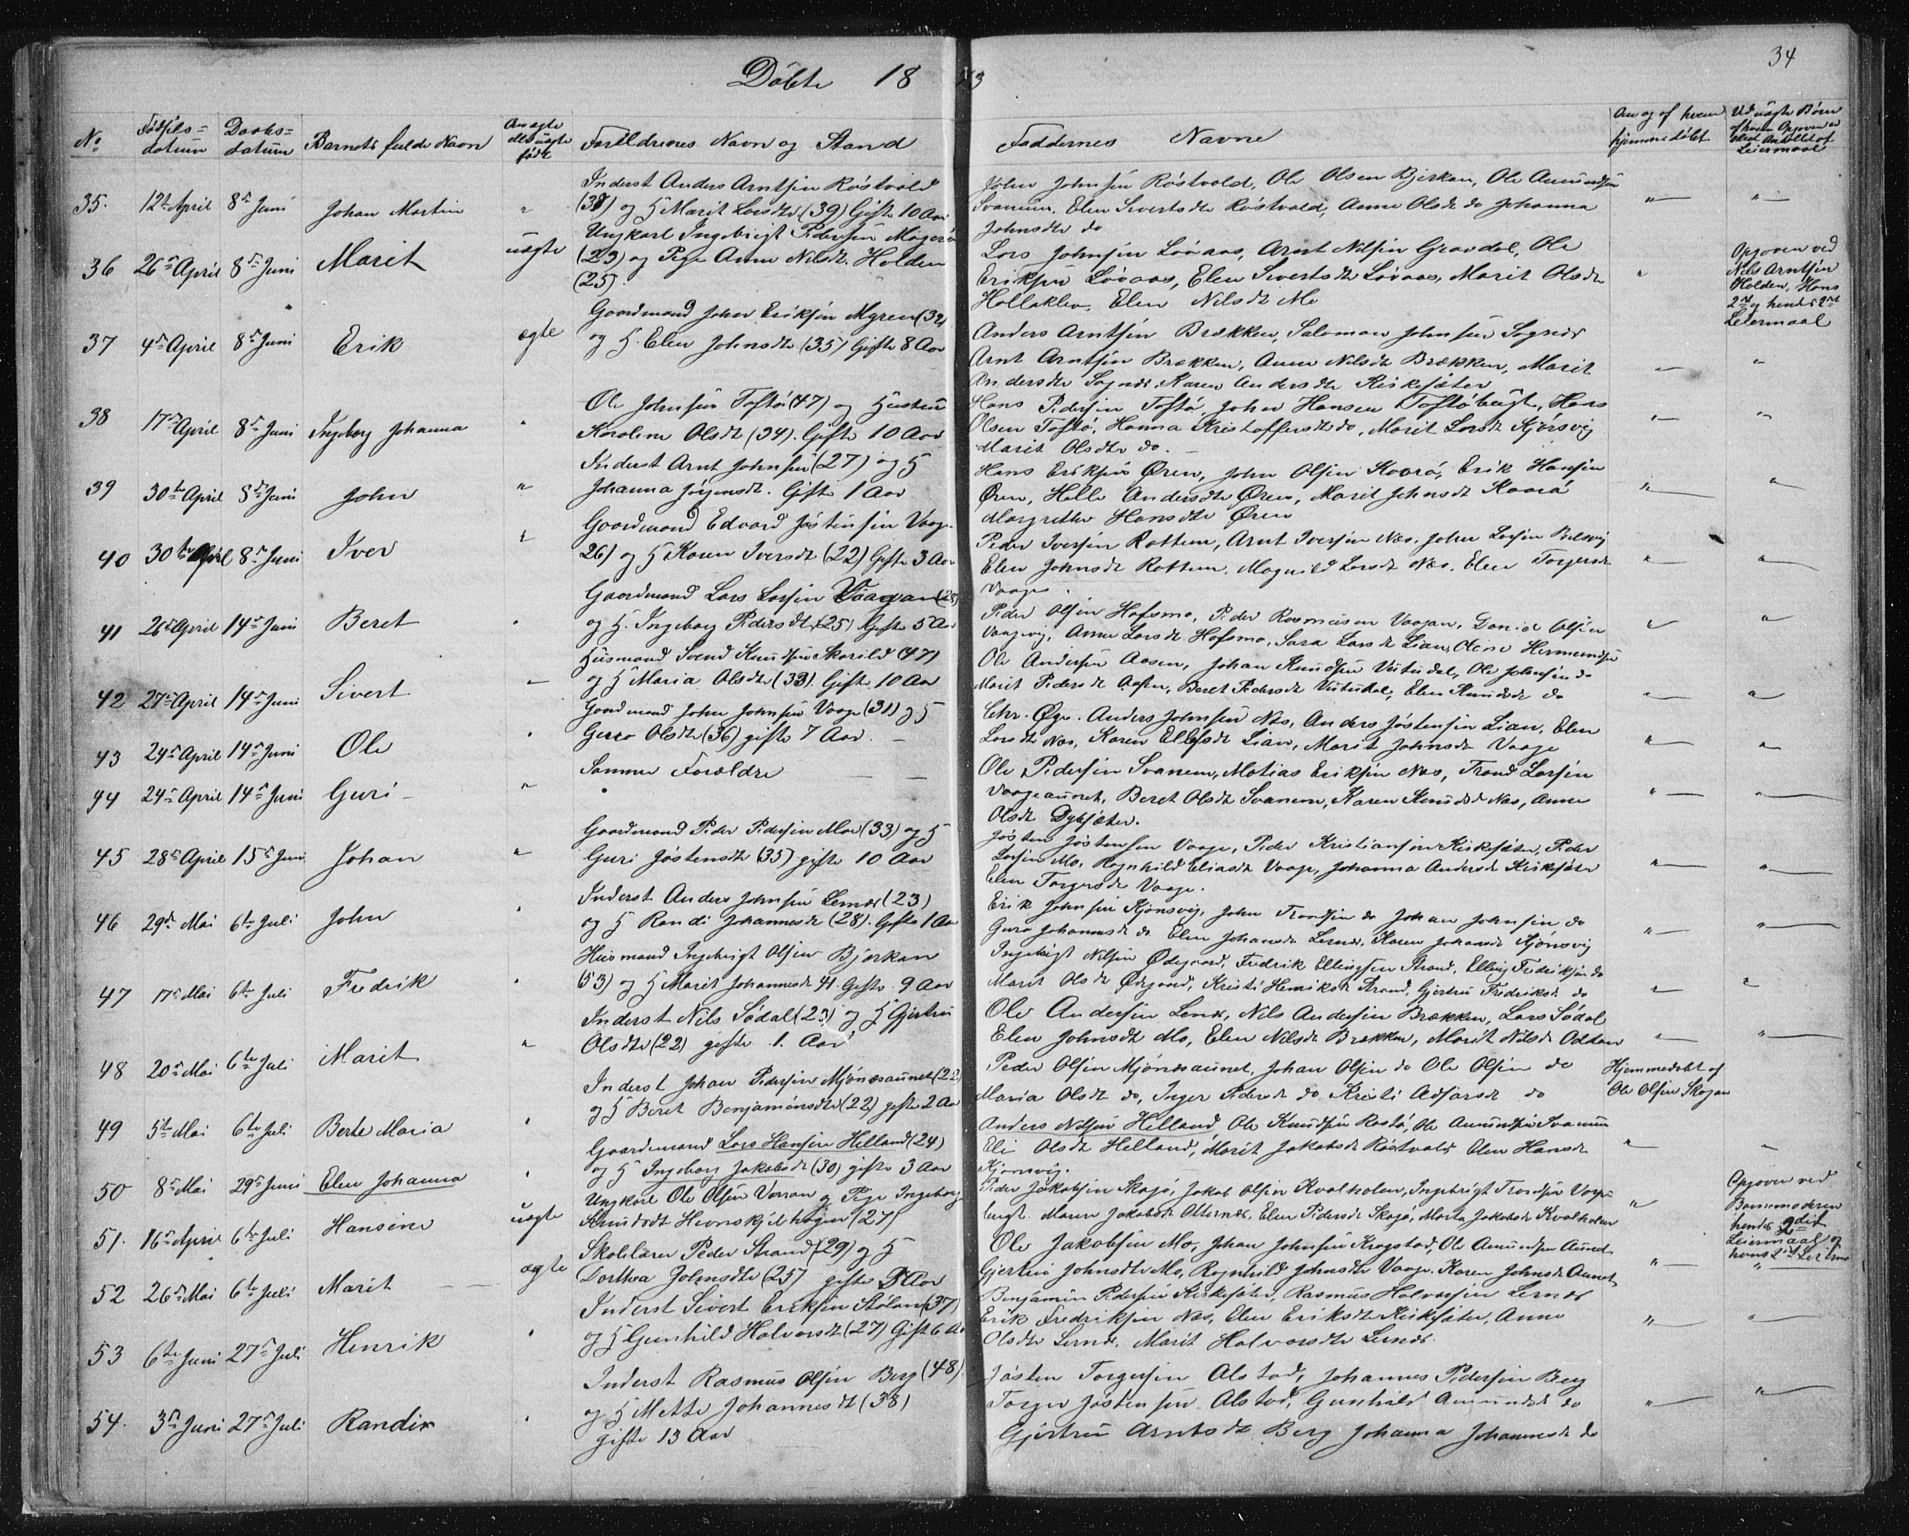 34
Döbte 18 73
No
Födsels=datum
Daabs=datum
Barnets fulde Navn
Om ægte eller uægte födt
Forældrenes Navn og Stand
Faddernes Navne
Om og af hvem hjemmedöbt
Ved uægte Børn
Leiermaal
35. 12te April 8de Juni Johan Martin "
Inderst Anders Arntsen Röstvold
(38) og H Marit Larsdtr (39) Gifte 10 Aar
John Johnsen Röstvold, Ole Olsen Bjerkan, Ole Amundsen
Svanem. Elen Sivertsdtr Röstvold, Anne Olsdtr do Johanna
Johnsdtr do
36 26de April 8de Juni Marit uægte
Ungkarl Ingebrigt Pedersen Magerö
(23) og Pige Anne Nilsdtr Holden
(25).
Lars Johnsen Lövaas, Arnt Nilsen Gravdal, Ole
Eriksen Lövaas, Elen Sivertsdtr Lövaas, Marit Olsdtr
Hollaklev, Elen Nilsdtr Mo
Opgoven ved
Nils Arntsen
Holden, Hans
2det og hendes 2det
Leiermaal
37 4de April 8de Juni Erik ægte
Gaardmand John Eriksen Myren (32)
og H. Elen Johnsdtr (35) Gifte 8 Aar
Anders Arntsen Brækken, Salomon Johnsen Sognes
Arnt Arntsen Brækken, Anne Nilsdtr Brækken, Marit
Andersdtr Sognes. Karen Andersdtr Kirksæter
38 17de April 8de Juni Ingeborg Johanna "
Ole Johnsen Toftö (47) og Hustru
Karoline Olsdtr (34). Gifte 10 Aar
Hans Pedersen Toftö, Johan Hansen Toftöbugt, Hans
Olsen Toftö, Hanna Kristoffersdtr do, Marit Larsdt Kjörsvig
Marit Olsdtr do.
39 30te April 8de Juni John "
Inderst Arnt Johnsen (27) og H
Johanna Jörgensdt. Gifte 1 Aar
Hans Eriksen Ören, John Olsen Kaarö, Erik Hansen
Ören, Helle Andersdtr Ören, Marit Johnsdt Kaarö
Margrethe Hansdtr Ören
40 30te April 8de Juni Iver "
Gaardmand Edvard Jöstensen Vaage
26) og H Karen Iversdt (22) Gifte 3 Aar
Peder Iversen Rottem, Arnt Iversen Nes. John Larsen Belsvig
Elen Johnsdt Rottem. Magnild Larsdt Nes. Elen Torgersdtr
Vaage.
41 26de April 14de Juni Beret "
Gaardmand Lars Larsen Vaagan (28)
og H. Ingeborg Pedersdt (25) Gifte 5 Aar
Peder Olsen Hofsmo, Peder Rasmusen Vaagan, Daniel Olsen
Vaagvig, Anne Larsdt Hofsmo, Sara Larsdt Lian, Olene Hermundsen
42 27de April 14de Juni Sivert "
Husmand Svend Knudsen Skarild (47)
og H Maria Olsdtr (33) Gifte 10 Aar
Ole Andersen Aasen, Johan Knudsen Vutudal, Ole Johnsen do
Marit Pedersdt Aasen, Beret Pedersdt Vutudal, Elen Knudsdt do
43 24de April 14de Juni Ole "
Gaardmand John Johnsen Vaage (31) og H
Guro Olsdtr (36) gifte 7 Aar.
Chr. Öye. Anders Johnsen Nes, Anders Jöstensen Lian, Elen
Larsdt Nes, Karen Ellefsdt Lian, Marit Johnsdt Vaage
44 24de April 14de Juni Guri "
Samme Forældre
Ole Pedersen Svanem, Matias Eriksen Nes, Trond Larsen
Vaageaunet, Beret Olsdt Svanem, Karen Knudsdt Nes, Anne
Olsdt Dybsæter.
45 28de April 15de Juni Johan "
Gaardmand Peder Pedersen Moe (33) og H
Guri Jöstensdt (35) gifte 10 Aar
Jösten Jöstensen Vaage, Peder Kristiansen Kirksæter, Peder
Larsen Mo, Ragnhild Eliasdt Vaage, Johanna Andersdt Kirksæter
Elen Torgersdt Vaage.
46 29de Mai 6te Juli John "
Inderst Anders Johnsen Lernes (23)
og H Randi Johannesdt (28). Gifte 1 Aar
Erik Johnsen Kjönsvig, John Trondsen do Johan Johnsen do
Guro Johannesdt do Elen Johansdt Lernes, Karen Johansdt Kjönsvig
47 17de Mai 6te Juli Fredrik "
Husmand Ingebrigt Olsen Bjerkan
(53) og H Marit Johannesdt 41. Gifte 9 Aar
Ingebrigt Nilsen Ödegaard, Fredrik Ellingsen Strand, Elling Fredriksen do
Marit Olsdt Ödegaard, Kristi Henriksdt Strand, Gjertru Fredriksdt do
48 20de Mai 6te Juli Marit "
Inderst Nils Södal (23) og H Gjertru
Olsdtr (22) gifte 1. Aar
Ole Andersen Lernes, Nils Andersen Brækken, Lars Södal
Elen Johnsdt Mo, Elen Nilsdt Brækken, Marit Nilsdt Oddan
49 5te Mai 6te Juli Berte Maria "
Inderst Johan Pedersen Mjönesaunet (22)
og H Beret Benjaminsdtr (22) gifte 2 Aar
Peder Olsen Mjönesaunet, Johan Olsen do Ole Olsen do
Maria Olsdt do, Inger Pedersdt do Kristi Adsersdt do
Hjemmedöbt af
Ole Olsen Skogan
50 8de Mai 29de Juni Elen Johanna "
Gaardmand Lars Hansen Helland (24)
og H Ingeborg Jakobsdt (30) gifte 3 Aar
Anders Nilsen Helland Ole Knudsen Rostö, Ole Amundsen Svanem
Eli Olsdt Helland, Marit Jakobsdt Röstvold Elen Hansdt
Kjönsvig.
51. 16de April 6te Juli Hansine uægte
Ungkarl Ole Olsen Vorran og Pige Ingeborg
Knudsdt Hevnskjelhögen (27)
Peder Jakobsen Skogö, Jakob Olsen Kvalholm, Ingebrigt Trondsen Vorpbugt
Maren Jakobsdt Otternes, Elen Pedersdt Skogö, Marta Jakobsdt Kvalholm
Opgoven ved
Barnemoderen
hendes 2det
Leiermaal og
hans 1ste Leierm
52 26de Mai 6te Juli Marit ægte
Skolelærer Peder Strand (29) og H
Dorthea Johnsdtr (25) gifte 5 Aar
Ole Jakobsen Mo, Johan Johnsen Krogstad, Ole Amundsen Aunet
Gjertru Johnsdtr Mo, Ragnhild Johnsdtr Vaage. Karen Johnsdt Aunet
53 6te Juni 27de Juli Henrik "
Inderst Sivert Eriksen Stölan (37)
og H Gunhild Halvorsdt (27) Gift 6 Aar
Benjamin Pedersen Kirksæter, Rasmus Halvorsen Lernes
Erik Fredriksen Nes, Elen Eriksdt Kirksæter, Anne
Olsdtr Lernes, Marit Halvorsdtr Lernes.
54. 3de Juni 27de Juli Randi "
Inderst Rasmus Olsen Berg (48)
og H Mette Johannesdt (38)
gifte 13 Aar
Jösten Torgersen Alstad, Johannes Pedersen Berg
Torger Jöstensen Alstad, Gunhild Amundsdt do
Gjertru Arntsdt Berg Johanna Johannesdt do